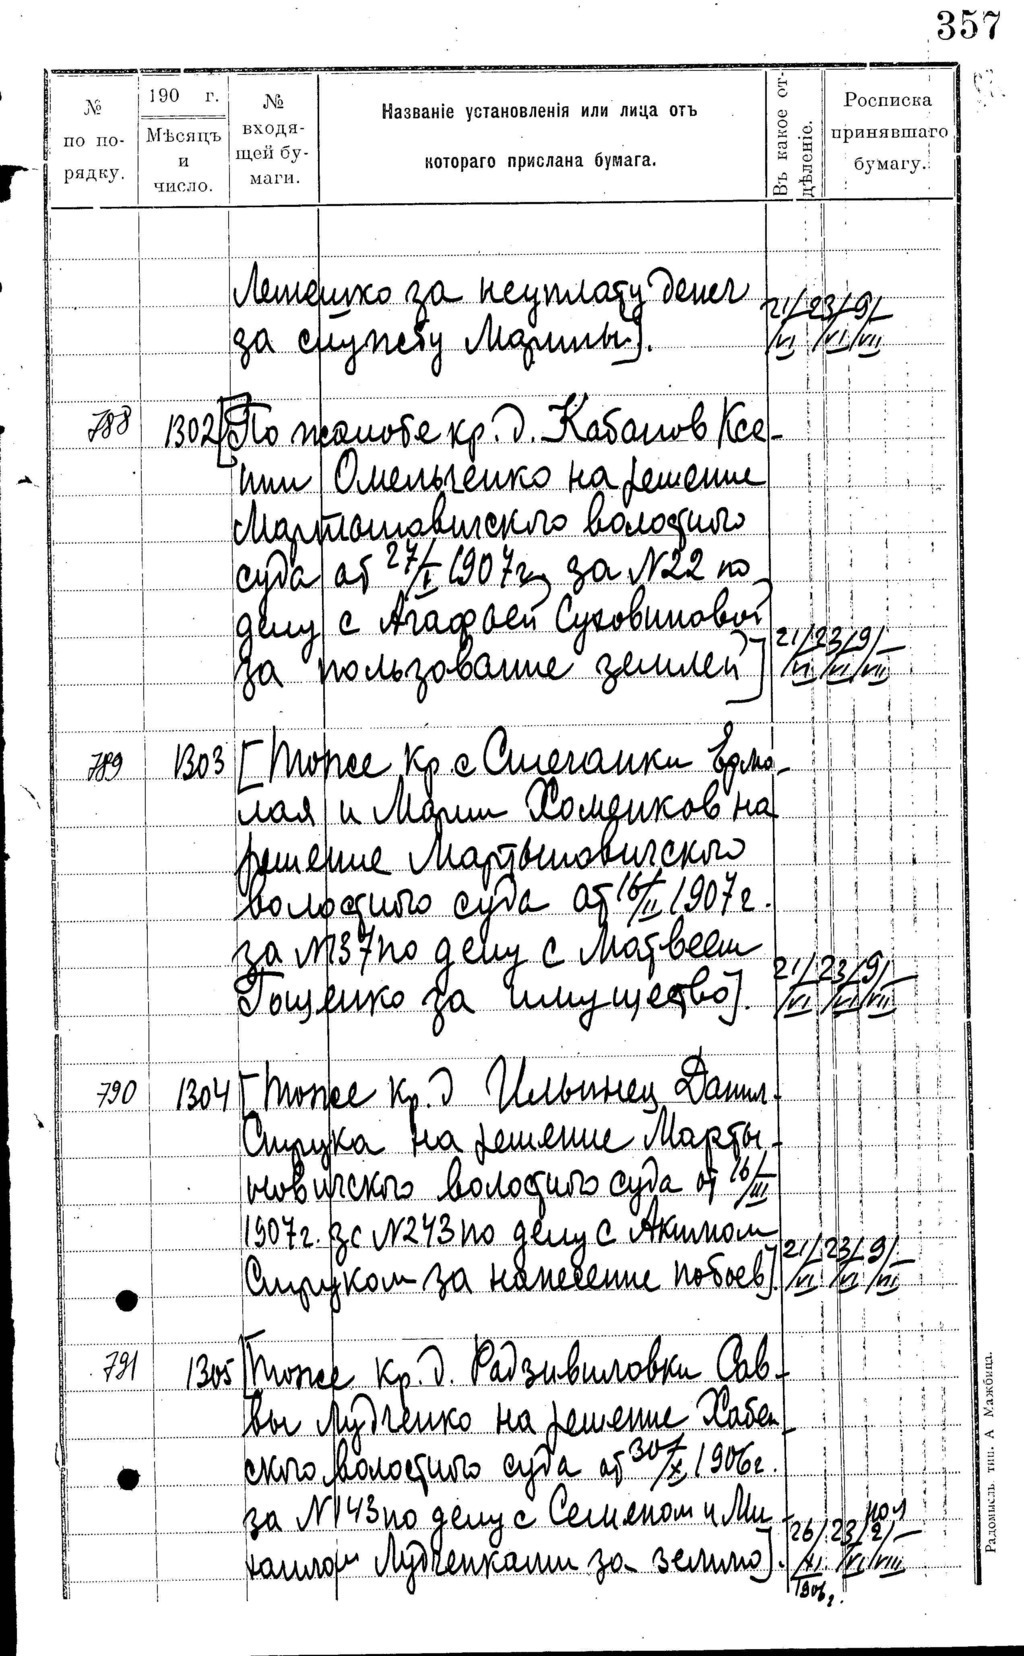 357
№ по по-рядку.
190 г. Мѣсяцъ и число.
№ входя-щей бу-маги.
Названіе установленія или лица отъ
котораго прислана бумага.
Въ какое от-дѣленіе.
Росписка принявшаго бумагу.
за неуплату денег
за службу Марины].
21/VI 23/VI 9/VII
788 1302 [По жалобе кр. д. Кабанов Ксе-
нии Омельченко на решение
Мартыновичского волостного
суда от 27/I 1907г. за N22 по
делу с Агафьей Суховиновой
за пользование землей]
21/VI 23/VI 9/VII
789 1303 [Тоже кр с Стечанки Ермо-
лая и Марии Хоменков на
решение Мартыновичского
волостного суда от 16/II 1907г.
за N37 по делу с Матвеем
Гощенко за имущество].
21/VI 23/VI 9/VII
790 1304 [Тоже кр. д Ильинец Данил
Струка на решение Марты-
новичского волостного суда от 16/III
1907г. за N243 по делу с Акимом
Струком за нанесение побоев]
21/VI 23/VI 9/VII
791 1305 [Тоже кр. д. Радзивиловки Сав-
вы Лудченко на решение Хабен-
ского волостного суда от 30/X 1906г.
за N143 по делу с Семеном и Ми-
хаилом Лудченками за землю].
26/XI 1906г. 23/VI 2/VIII
Радомысль тип. А Мажбица.